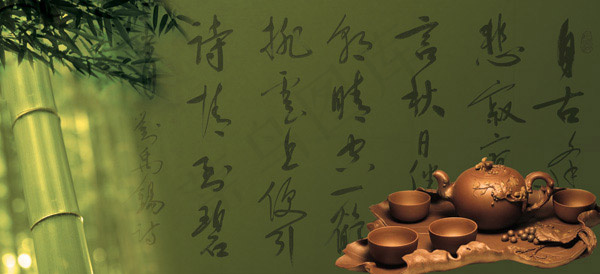 自古
悲寂寥
言秋日
朝晴空一鹤
排云上便引
诗情到碧
刘禹锡诗